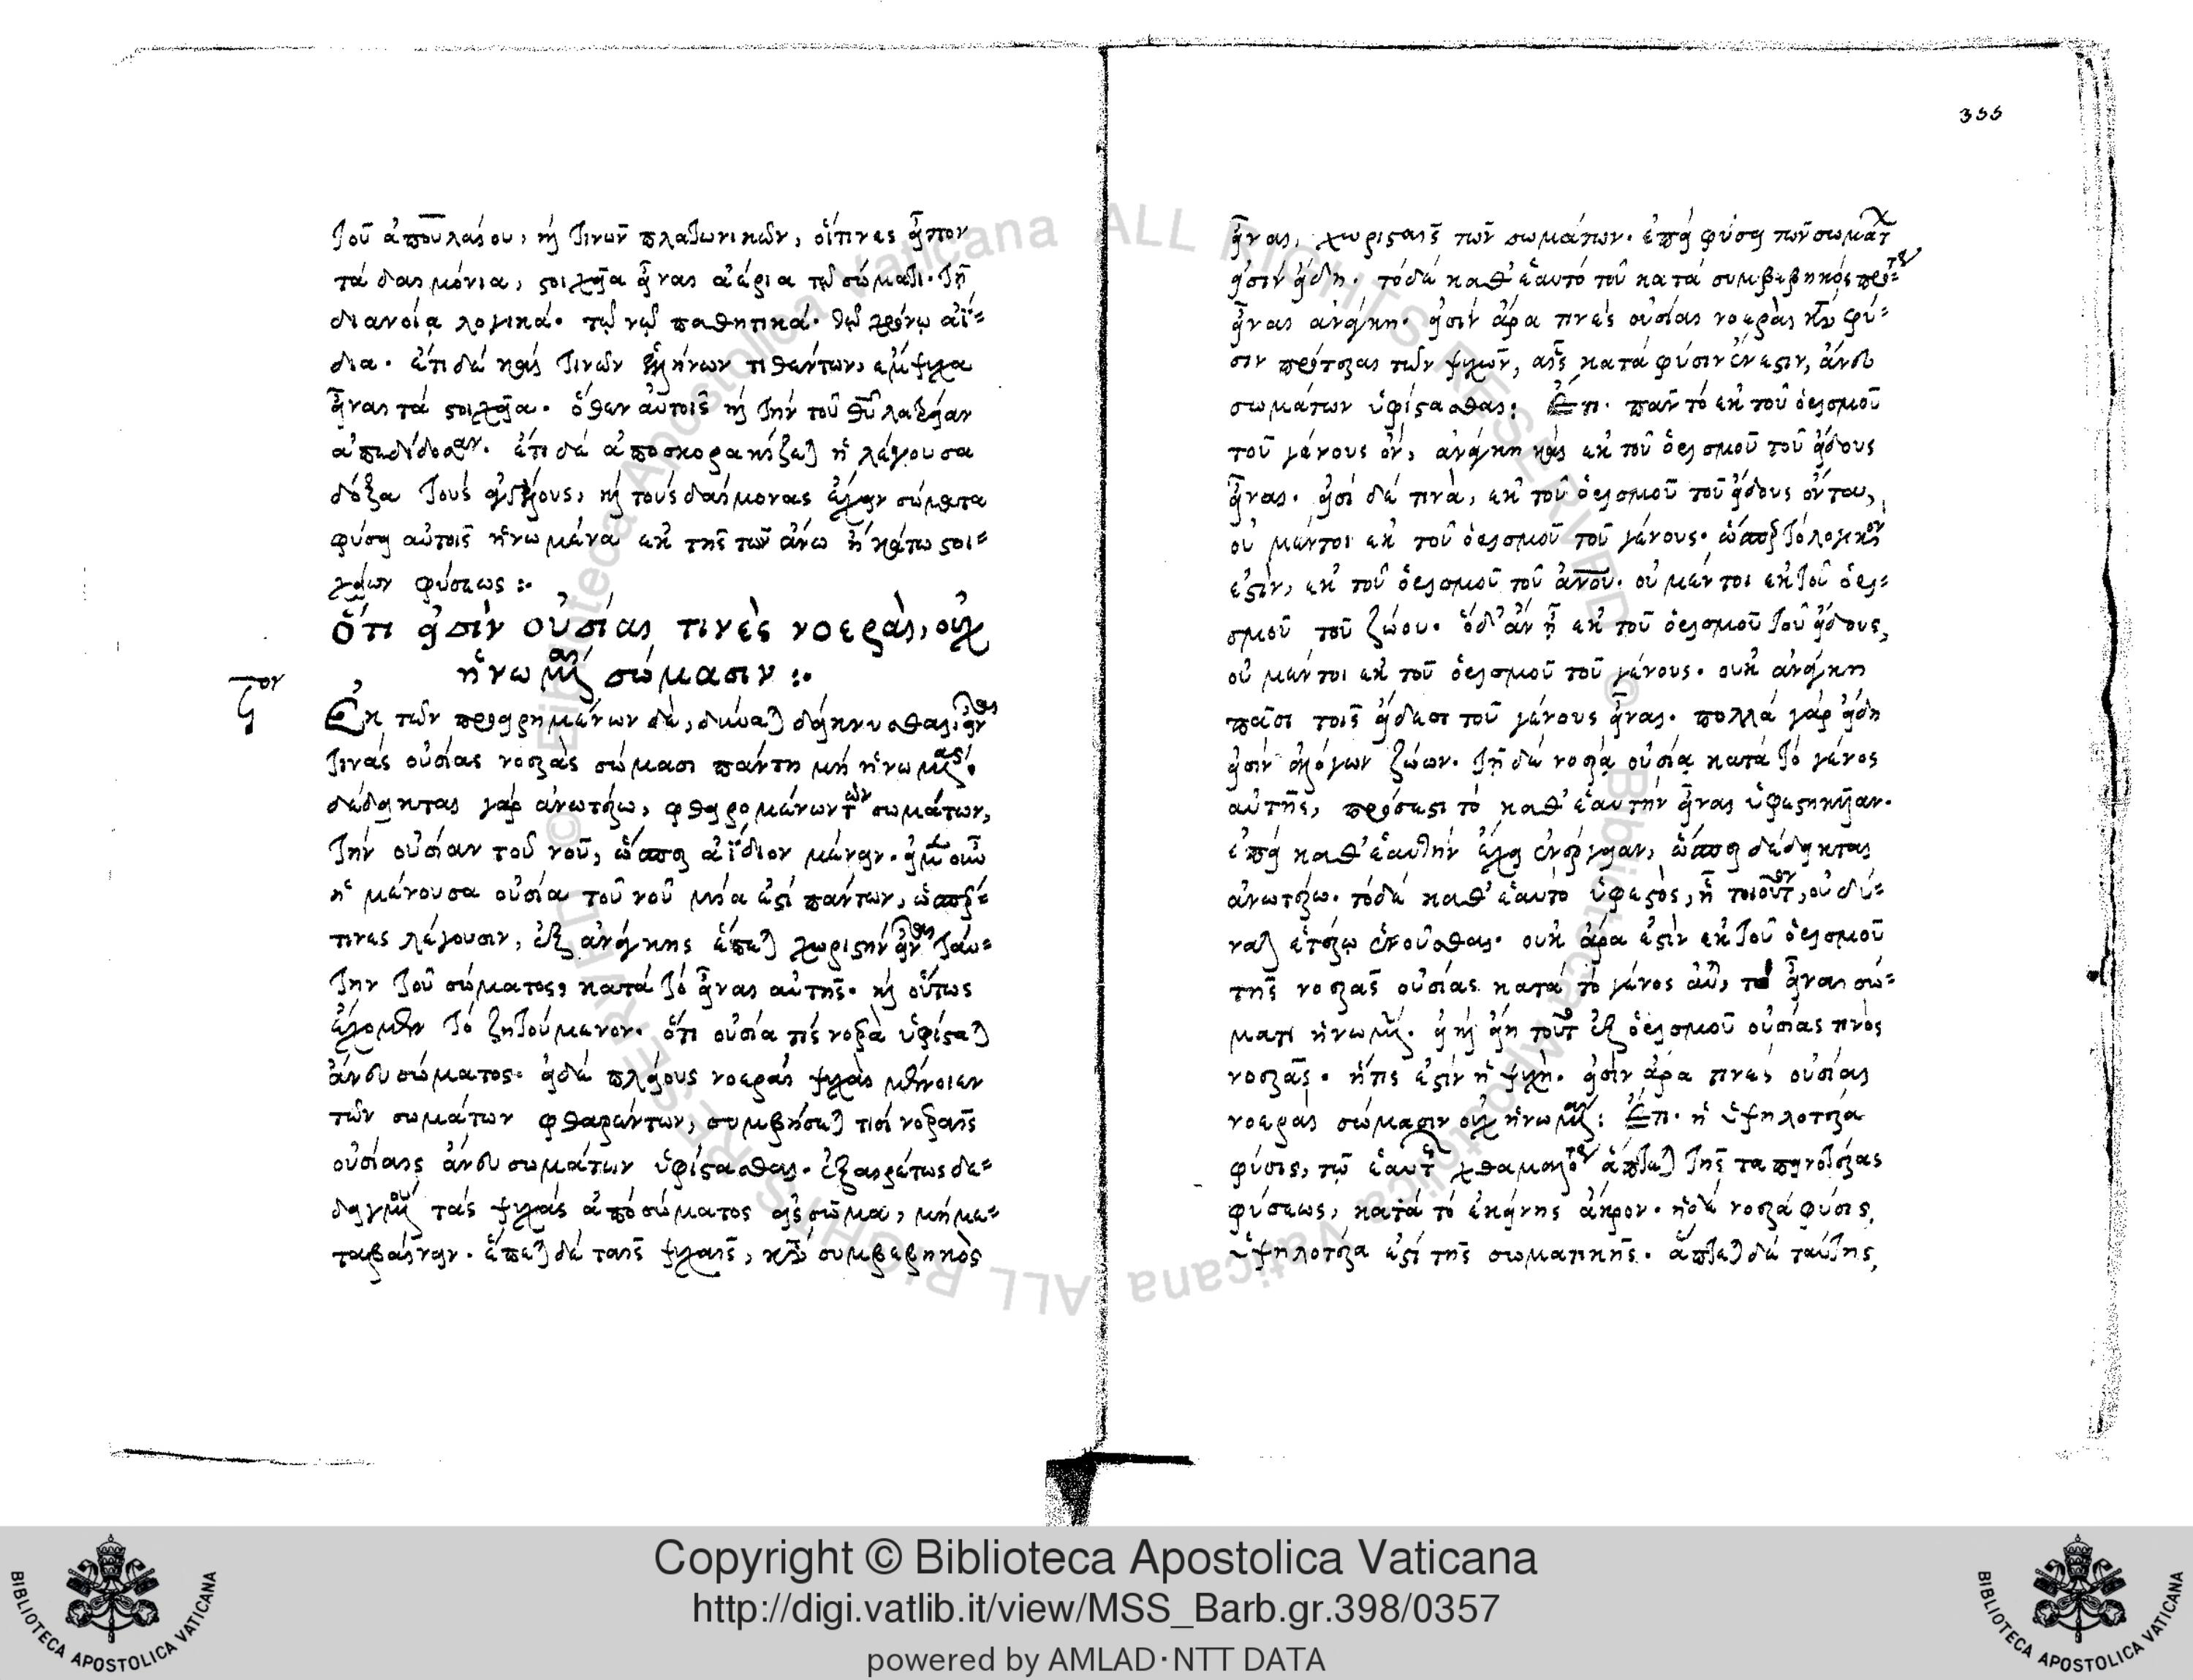 τοῦ ἀπουλαίου, καὶ τινῶν πλατωνικῶν, οἵτινες εἶπον
τὰ δαιμόνια, στοιχεῖα εἶναι ἀέρια τῷ σώματι. τῇ
διανοίᾳ λογικά. τῷ νῷ παθητικά. τῷ χρόνῳ ἀΐ-
δια. ἔτι δὲ καὶ τινῶν τιθέντων, ἔμψυχα
εἶναι τὰ στοιχεῖα. ὅθεν αὐτοῖς καὶ τὴν τοῦ θυ λατρείαν
ἀπεδίδοσαν. ἔτι δὲ ἀποσκορακίζεται ἡ λέγουσα
δόξα τοὺς ἀγγέλους, καὶ τοὺς δαίμονας ἔχειν σώματα
φύσει αὐτοῖς ἡνωμένα ἐκ τῆς τῶν ἄνω ἢ κάτω στοι-
χείων φύσεως :·
Ὅτι εἰσὶν οὐσίαι τινὲς νοεραὶ, οὐχ
ἡνωμέναι σώμασιν :·
Ἐκ τῶν προειρημένων δὲ, δύναται δείκνυσθαι, εἶναι
τινὰς οὐσίας νοερὰς σώμασι πάντη μὴ ἡνωμένας.
δέδεικται γὰρ ἀνωτέρω, φθειρομένων τῶν σωμάτων,
τὴν οὐσίαν τοῦ νοῦ, ὥσπερ ἀΐδιον μένειν. εἰ μὲν οὖν
ἡ μένουσα οὐσία τοῦ νοῦ μία ἐστὶ πάντων, ὥσπερ
τινες λέγουσιν, ἐξ ἀνάγκης ἕπεται χωριστὴν εἶναι ταύ-
την τοῦ σώματος, κατὰ τὸ εἶναι αὐτῆς. καὶ οὕτως
ἔχομεν τὸ ζητούμενον. ὅτι οὐσία τὶς νοερὰ ὑφίσταται
ἄνευ σώματος. εἰ δὲ πλείους νοεραὶ ψυχαὶ μένοιεν
τῶν σωμάτων φθαρέντων, συμβήσεται τισὶ νοεραῖς
οὐσίαις ἄνευ σωμάτων ὑφίστασθαι. ἐξαιρέτως δε-
δειγμένου τὰς ψυχὰς ἀπὸ σώματος εἰς σῶμα, μὴ με-
ταβαίνειν. ἕπεται δὲ ταῖς ψυχαῖς, κατὰ συμβεβηκὸς
355
εἶναι, χωρισταῖς τῶν σωμάτων. ἐπεὶ φύσει τῶν σωμάτων
εἰσὶν εἴδη. τὸ δὲ καθ' ἑαυτὸ τοῦ κατὰ συμβεβηκός πρότερον
εἶναι ἀνάγκη. εἰσὶν ἄρα τινὲς οὐσίαι νοεραὶ κατὰ φύ-
σιν πρότεραι τῶν ψυχῶν, αἷς κατὰ φύσιν ἔνεστιν, ἄνευ
σωμάτων ὑφίστασθαι: Ἔτι. πᾶν τὸ ἐκ τοῦ ὁρισμοῦ
τοῦ γένους ὂν, ἀνάγκη καὶ ἐκ τοῦ ὁρισμοῦ τοῦ εἴδους
εἶναι. εἰσὶ δὲ τινὰ, ἐκ τοῦ ὁρισμοῦ τοῦ εἴδους ὄντα,
οὐ μέντοι ἐκ τοῦ ὁρισμοῦ τοῦ γένους. ὥσπερ τὸ λογικὸν
ἐστὶν, ἐκ τοῦ ὁρισμοῦ τοῦ ἀνου. οὐ μέντοι ἐκ τοῦ ὁρι-
σμοῦ τοῦ ζώου. ὃ δ' ἂν ᾖ ἐκ τοῦ ὁρισμοῦ τοῦ εἴδους,
οὐ μέντοι ἐκ τοῦ ὁρισμοῦ τοῦ γένους. οὐκ ἀνάγκη
πᾶσι τοῖς εἴδεσι τοῦ γένους εἶναι. πολλὰ γὰρ εἴδη
εἰσὶν ἀλόγων ζώων. τῇ δὲ νοερᾷ οὐσίᾳ κατὰ τὸ γένος
αὐτῆς, πρόσεστι τὸ καθ' ἑαυτὴν εἶναι ὑφεστηκυῖαν.
ἐπεὶ καθ' ἑαυτὴν ἔχει ἐνέργειαν, ὥσπερ δέδεικται
ἀνωτέρω. τὸ δὲ καθ' ἑαυτὸ ὑφεστὸς, ᾗ τοιοῦτον, οὐ δύ-
ναται ἑτέρῳ ἑνοῦσθαι. οὐκ ἄρα ἐστὶν ἐκ τοῦ ὁρισμοῦ
τῆς νοερᾶς οὐσίας κατὰ τὸ γένος αὐτῆς, τὸ εἶναι σώ-
ματι ἡνωμένην. εἰ καὶ εἴη τοῦτο ἐξ ὁρισμοῦ οὐσίας τινὸς
νοερᾶς. ἥτις ἐστὶν ἡ ψυχή. εἰσὶν ἄρα τινὲς οὐσίαι
νοεραὶ σώμασιν οὐχ ἡνωμέναι: Ἔτι. ἡ ὑψηλοτέρα
φύσις, τῷ ἑαυτῆς χθαμαλωτέρῳ ἅπτεται τῆς ταπεινοτέρας
φύσεως, κατὰ τὸ ἐκείνης ἄκρον. ἡ δὲ νοερὰ φύσις,
ὑψηλοτέρα ἐστὶ τῆς σωματικῆς. ἅπτεται δὲ ταύτης,
Copyright © Biblioteca Apostolica Vaticana
http://digi.vatlib.it/view/MSS_Barb.gr.398/0357
powered by AMLAD·NTT DATA